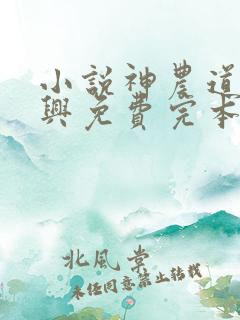 小説神農道
興免費完本
北風棠
未經同意禁止轉載